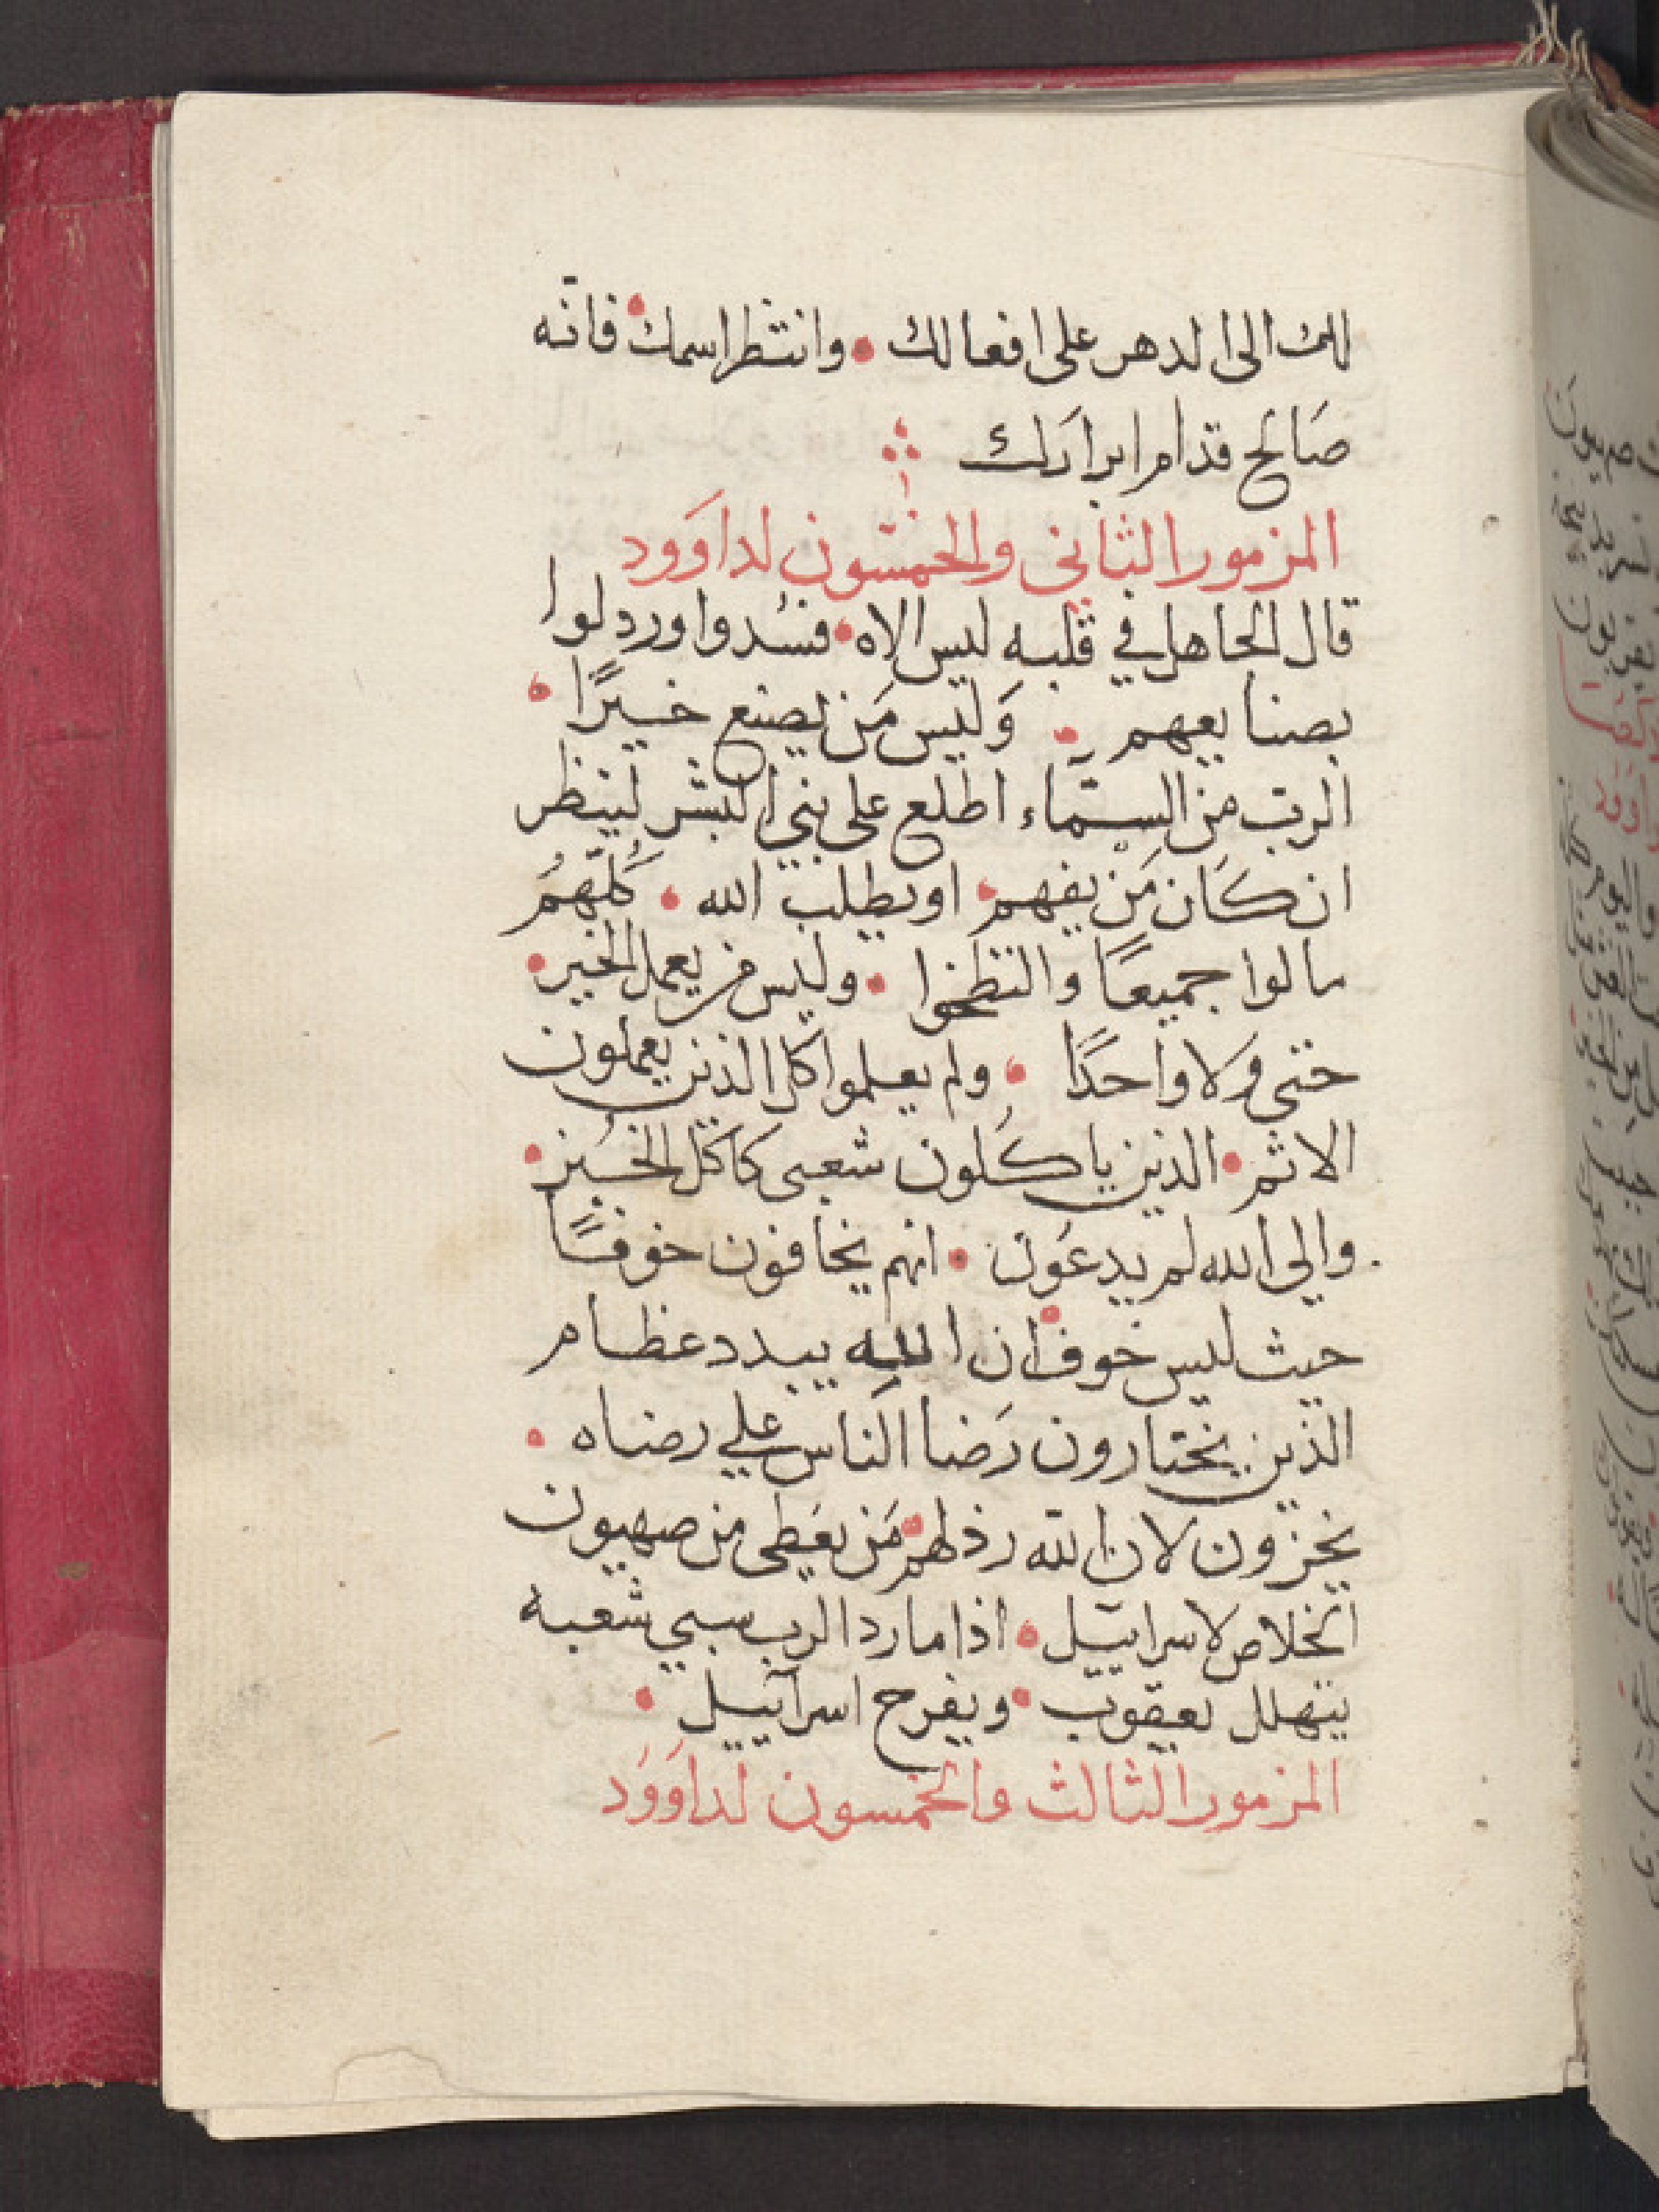 لك الى الدهر على افعالك • وانتظر اسمك • فانّه
صَالح قدام ابرارَك
المزمور الثانى والخمسون لداوَود
قال الجاهل في قلبه ليس الاه • فسُدوا وردلوا
بصنايعهم • وَليس مَن يصنع خيرًا •
الرب من السمَّاء اطلع على بني البشر لينظر
ان كَان مَن يفهم • او يطلب الله • كُلّهمُ
مالوا جميعًا والتطخوا • وليس من يعمل الخير •
حتى وَلا واحدًا • ولم يعلموا كل الذين يعملون
الاثم • الذين ياكلون شعبى كاكل الخُبز •
والى الله لم يدعَون • انهم يخافون خوفًا
حيث ليس خوف • ان الله يبدد عظام
الذين يختارون رَضا الناس علي رضاه •
يخزون لان الله رذلهم • مَن يعَطى من صهيون
الخلاص لاسراييل • اذا ما رد الرب سبي شعبه
يتهلل يعقوب • ويفرح اسراييل •
المزمور الثالث والخمسون لداوَوَد